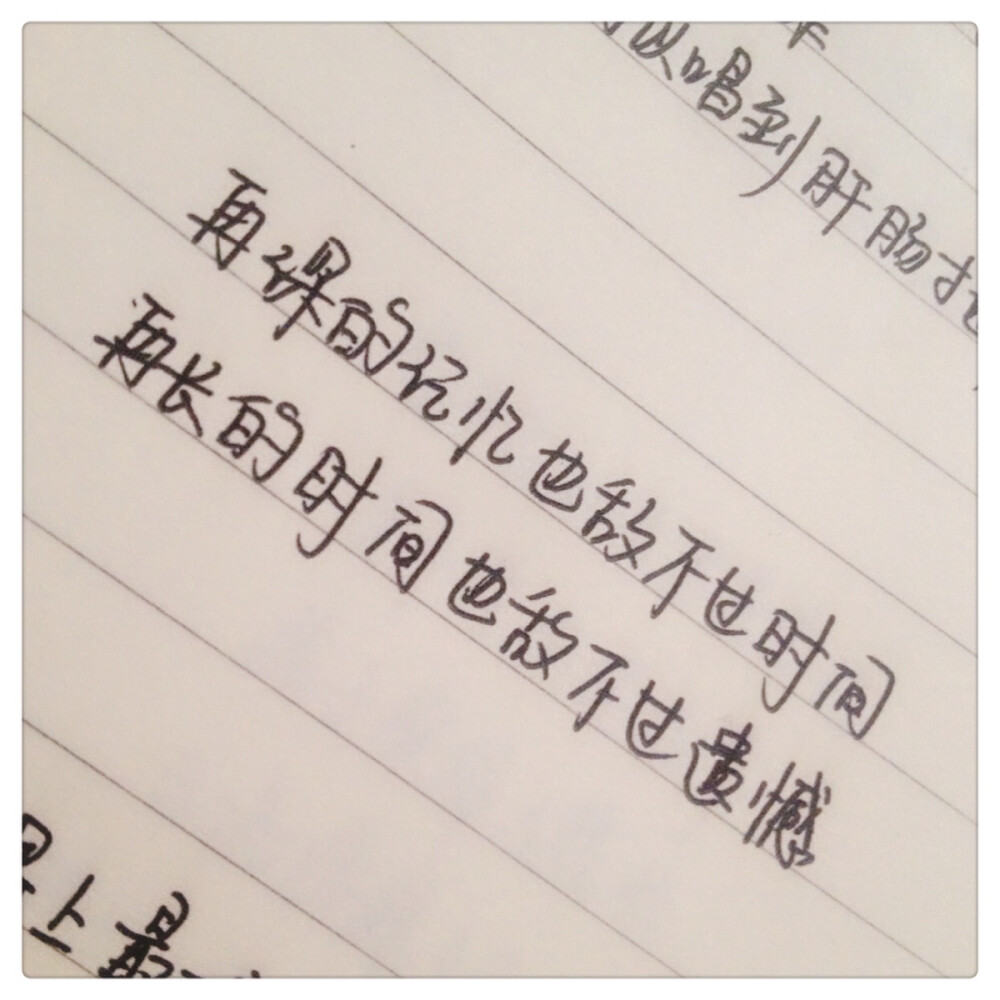 以唱到肝肠
再深的记忆也敌不过时间
再长的时间也敌不过遗憾
上最